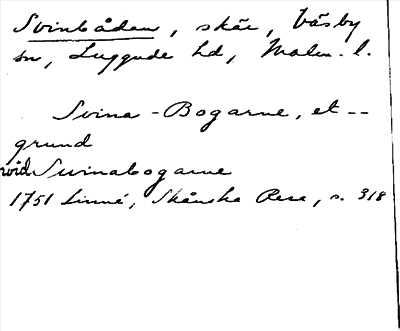 Svinbådan, skär, Väsby
sn, Luggude hd, Malm. l.
Svina-Bogarne, et --
grund
vid Swinabogarne
1751 Linné, Skånska Resa, s. 318